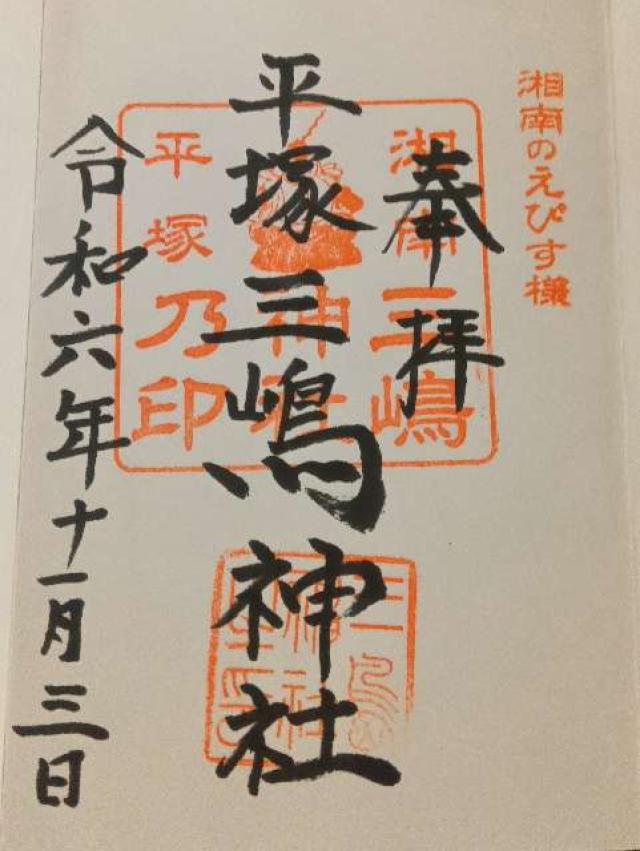 湘南のえびす様
奉拝
平塚三嶋神社
令和六年十一月三日
湘南三嶋
神社
平塚乃印